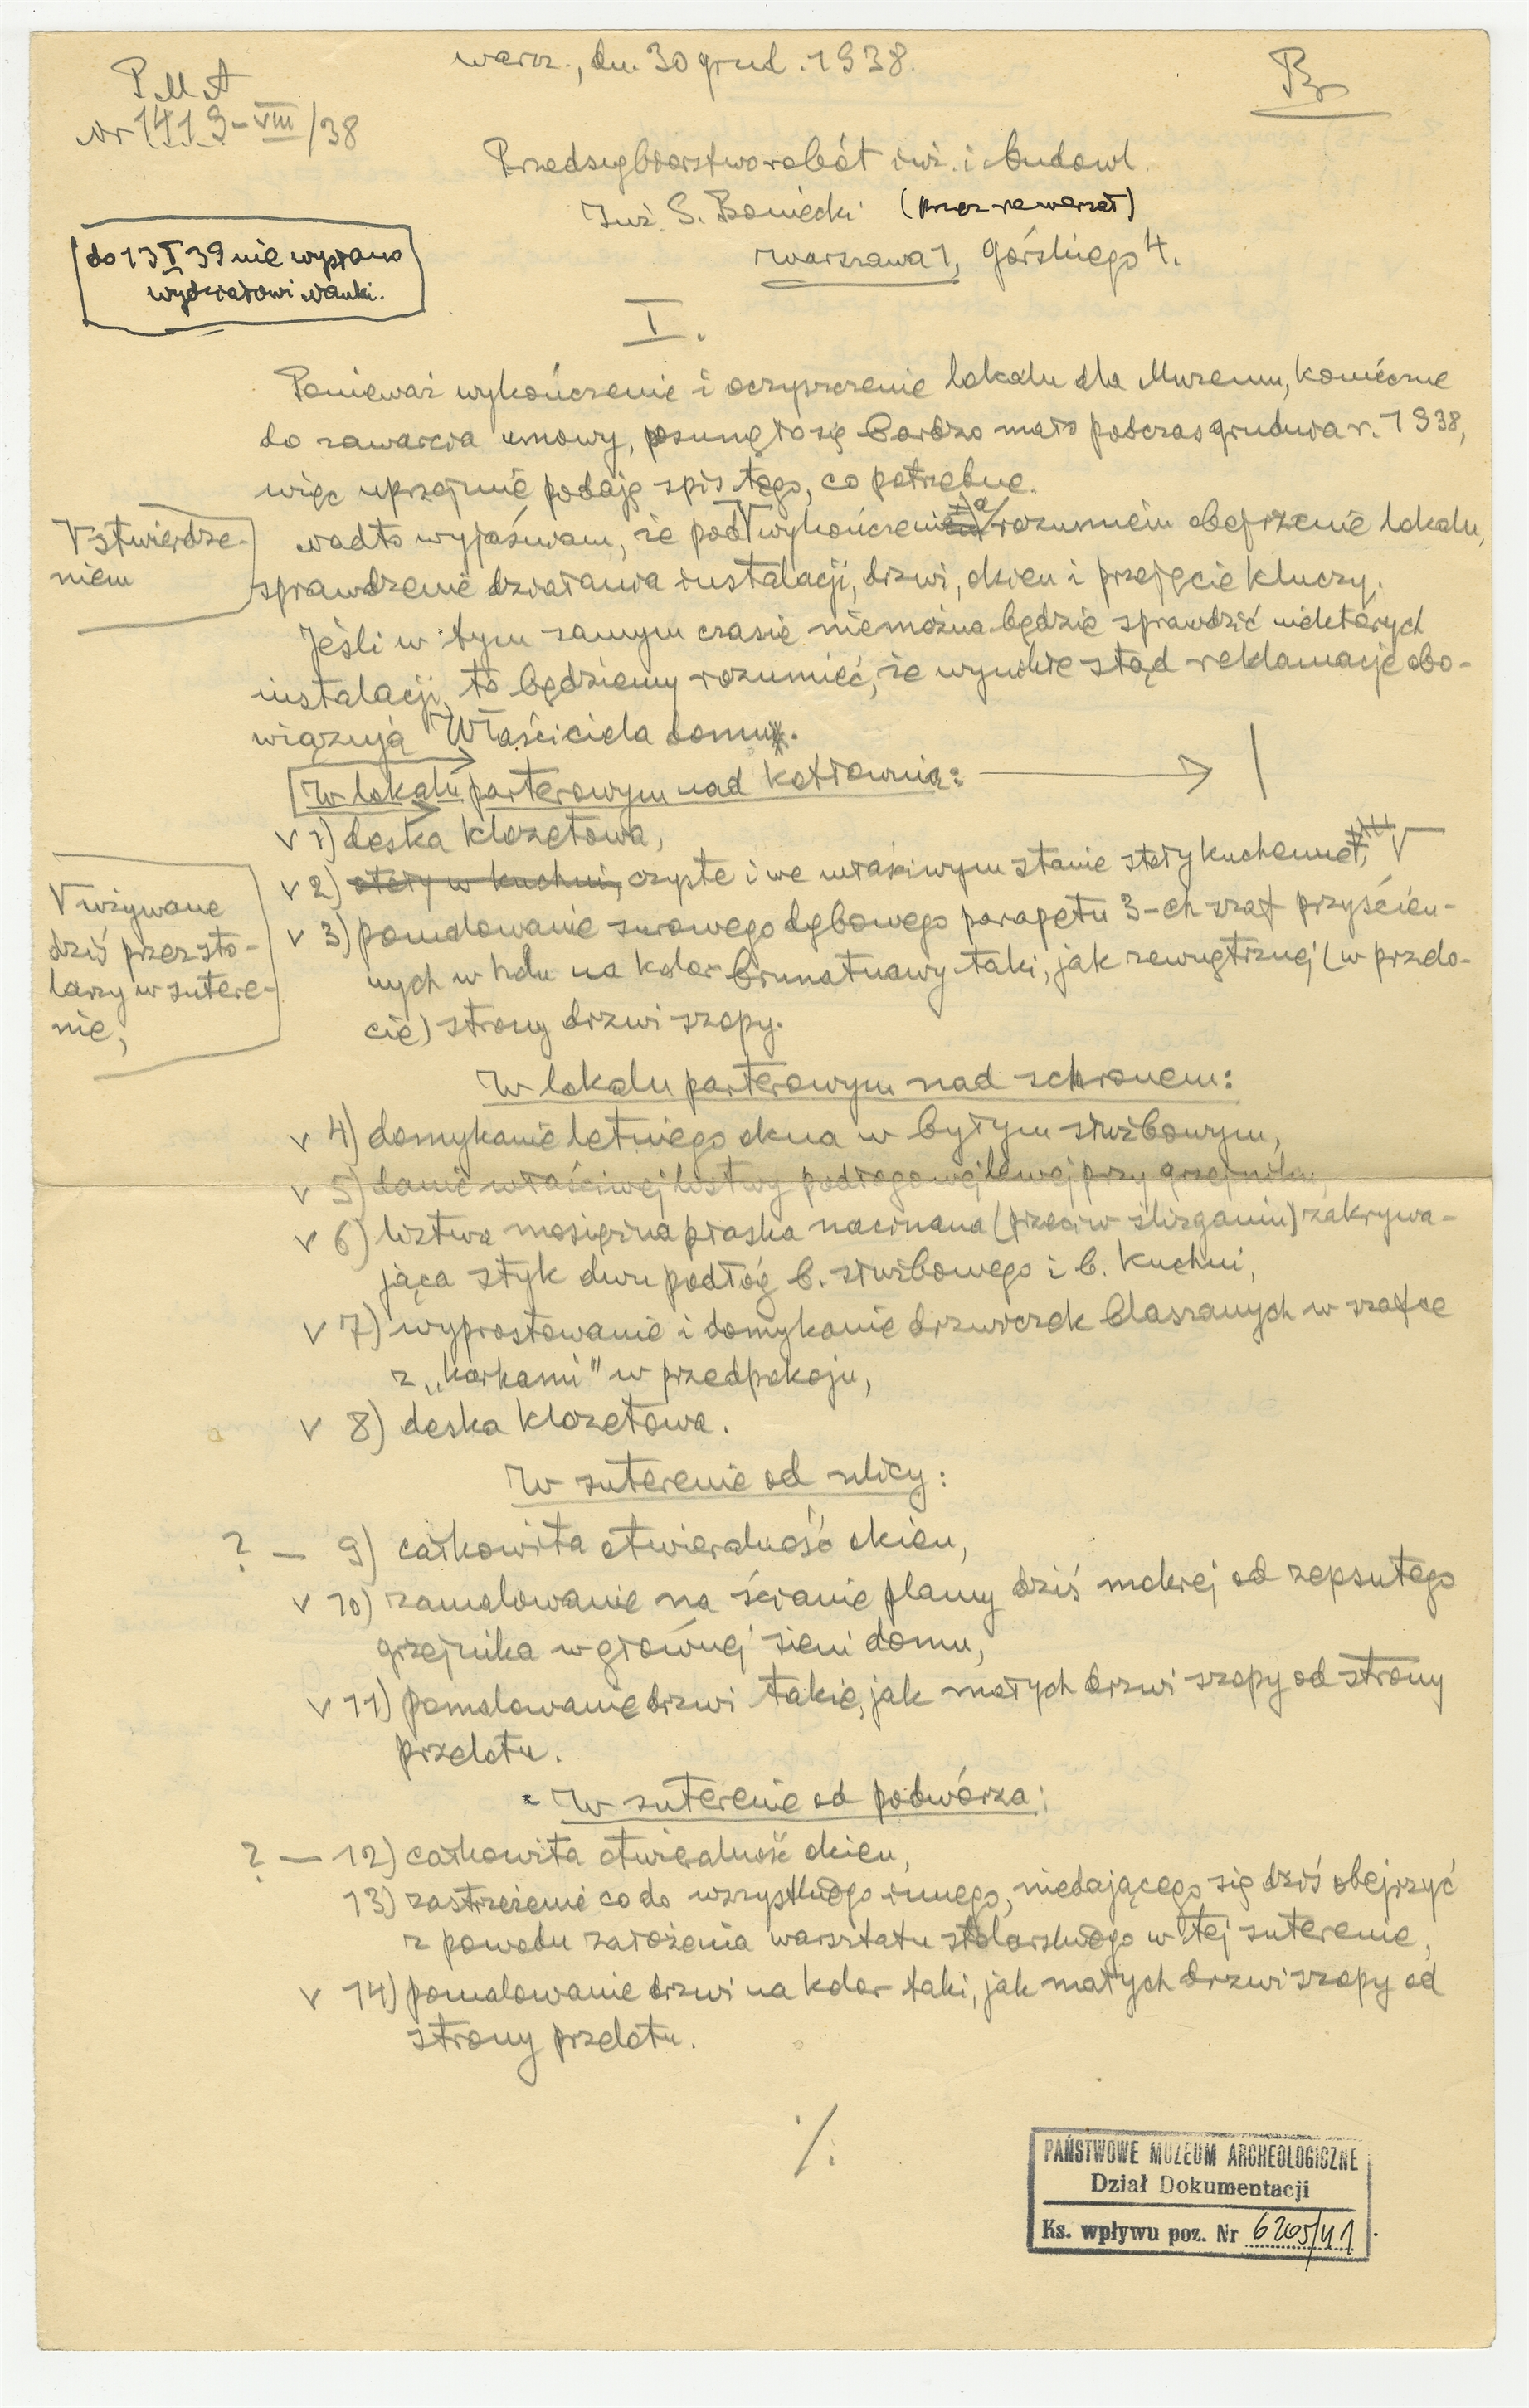 Warsz., dn. 30 grud. 1938.
P.M.A
Nr 1419-VIII/38
Bo
Przedsiębiorstwo robót inż. i budowl.
Inż. S. Boniecki (przez rewersał)
Warszawa 1, Górskiego 4.
do 13 I 39 nie wysłano
wydziałowi nauki.
I.
Ponieważ wykończenie i oczyszczenie lokalu dla Muzeum, konieczne
do zawarcia umowy, posunęło się bardzo mało podczas grudnia r. 1938,
więc uprzejmie podaję spis tego, co potrzebne.
V stwierdze-
niem
Nadto wyjaśniam, że pod V wykończenia rozumiem obejrzenie lokalu,
sprawdzenie działania instalacji, drzwi, okien i przejęcie kluczy.
Jeśli w tym samym czasie niemożna będzie sprawdzić niektórych
instalacji, to będziemy rozumieć, że wynikłe stąd reklamacje obo-
wiązują Właściciela domu.
W lokalu parterowym nad kotłownią:
v 1) deska klozetowa,
v 2) stoły w kuchni, czyste i we właściwym stanie stoły kuchenne V
V używane
dziś przez sto-
larzy w sutere-
nie,
v 3) pomalowanie surowego dębowego parapetu 3-ch szaf przyścien-
nych w holu na kolor brunatnawy taki, jak zewnętrznej (w przelo-
cie) strony drzwi szopy.
W lokalu parterowym nad schronem:
v 4) domykanie letniego okna w byłym służbowym,
v 5) danie właściwej listwy podłogowej lewej przy grzejniku,
v 6) listwa mosiężna płaska nacinana (przeciw ślizganiu) zakrywa-
jąca styk dwu podłóg b. służbowego i b. kuchni,
v 7) wyprostowanie i domykanie drzwiczek blaszanych w szafce
z „korkami" w przedpokoju,
v 8) deska klozetowa.
W suterenie od ulicy:
? — 9) całkowita otwieralność okien,
v 10) zamalowanie na ścianie plamy dziś mokrej od zepsutego
grzejnika w głównej sieni domu,
v 11) pomalowanie drzwi takie, jak małych drzwi szopy od strony
przelotu.
W suterenie od podwórza:
? — 12) całkowita otwieralność okien,
13) zastrzeżenie co do wszystkiego innego, niedającego się dziś obejrzyć
z powodu założenia warsztatu stolarskiego w tej suterenie,
v 14) pomalowanie drzwi na kolor taki, jak małych drzwi szopy od
strony przelotu.
./.
PAŃSTWOWE MUZEUM ARCHEOLOGICZNE
Dział Dokumentacji
Ks. wpływu poz. Nr 6205/41